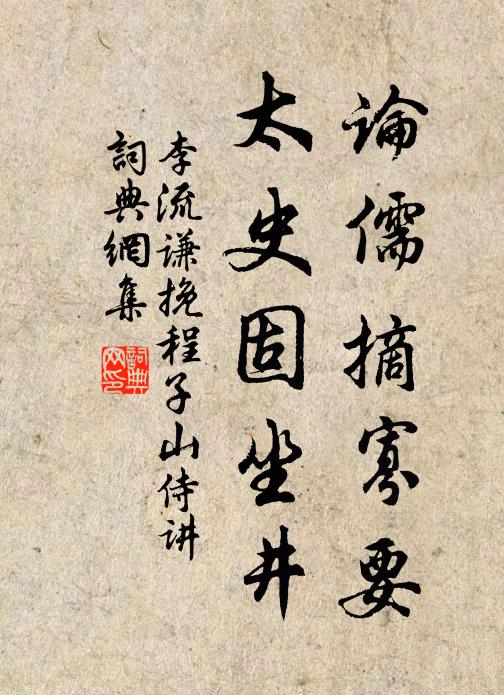 論儒摘寡要
太史固坐井
李流谦挽程子山侍讲
詞典網集
詞典網印